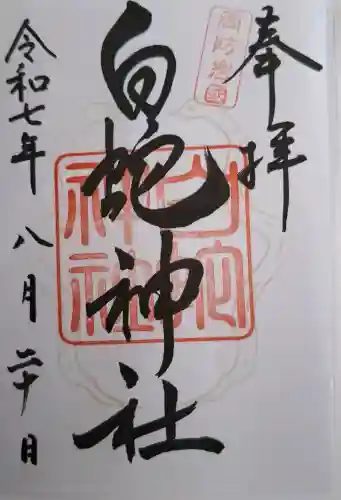 奉拝
周防岩國
白蛇神社
白蛇神社
令和七年八月二十日